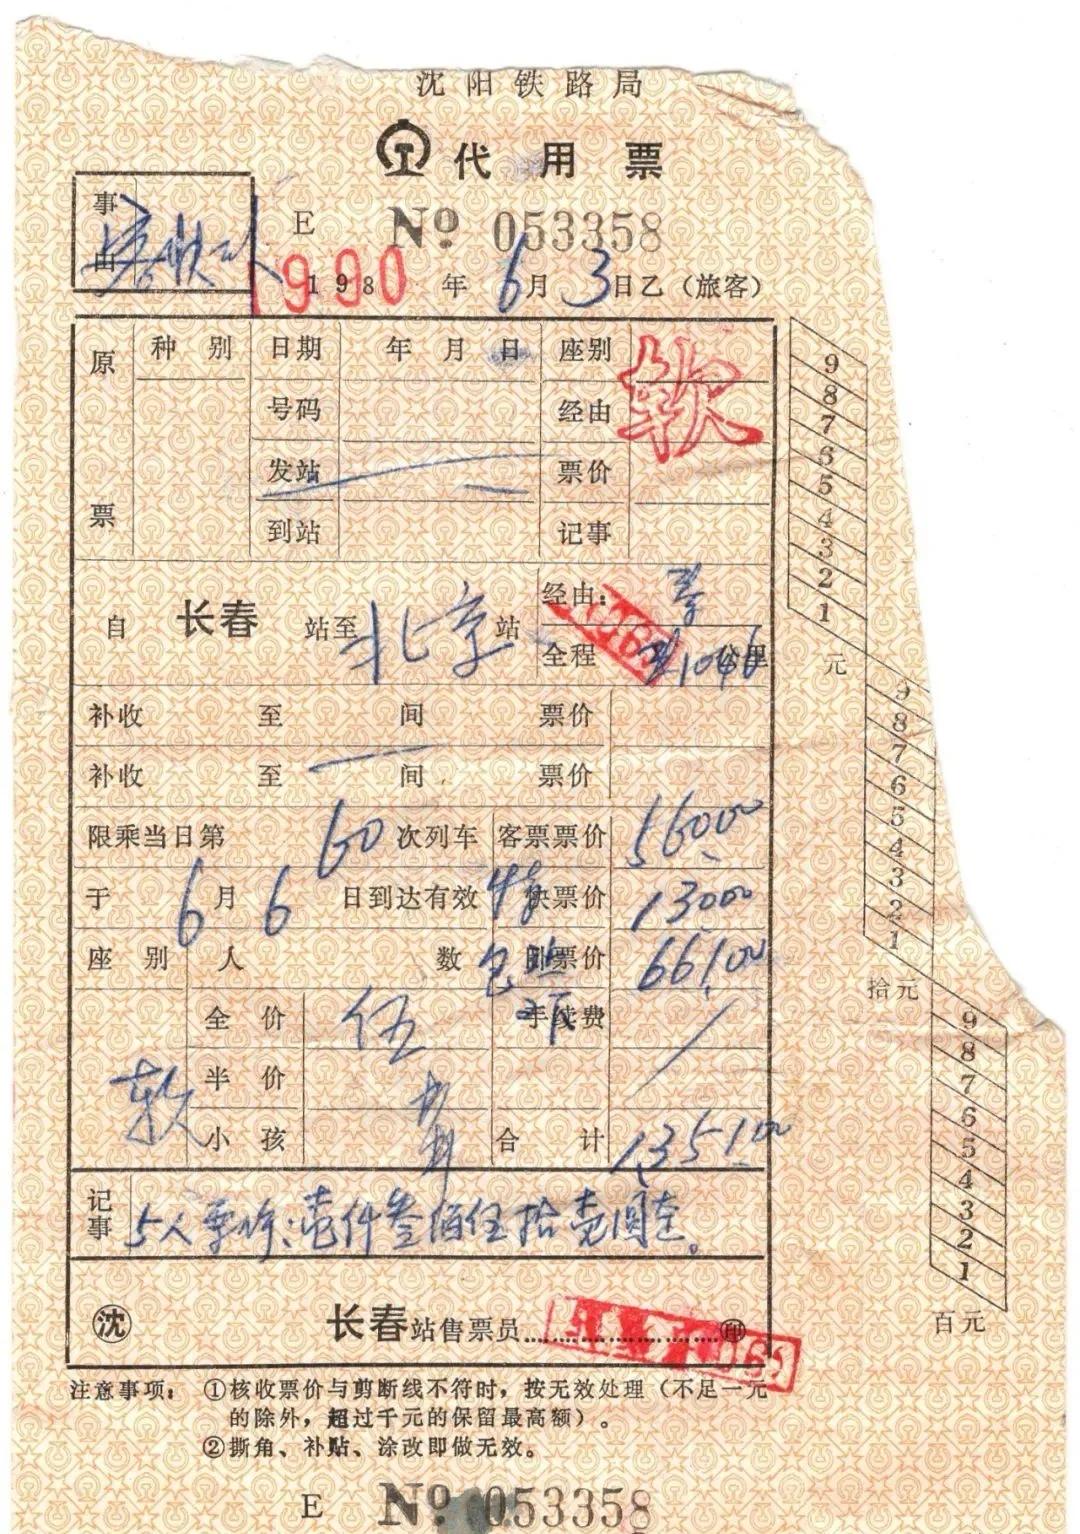 沈阳铁路局
代用票
事由
E № 053358
1990年6月3日乙（旅客）
原票 种别 日期 年月日 座别 软
号码 经由
发站 票价
到站 记事
自 长春 站至 北京 站 经由：
全程 1046 公里
补收 至 间 票价
补收 至 间 票价
限乘当日第 60 次列车 客票票价 560.00
于 6 月 6 日到达有效 特快票价 130.00
座别 人数 包卧票价 661.00
软 全价 伍 手续费
半价
小孩 合计 1351.00
记事 5人票价：壹仟叁佰伍拾壹圆
沈 长春站售票员 印
注意事项：①核收票价与剪断线不符时，按无效处理（不足一元
的除外，超过千元的保留最高额）。
②撕角、补贴、涂改即做无效。
E № 053358
9
8
7
6
5
4
3
2
1
元
9
8
7
6
5
4
3
2
1
拾元
9
8
7
6
5
4
3
2
1
百元